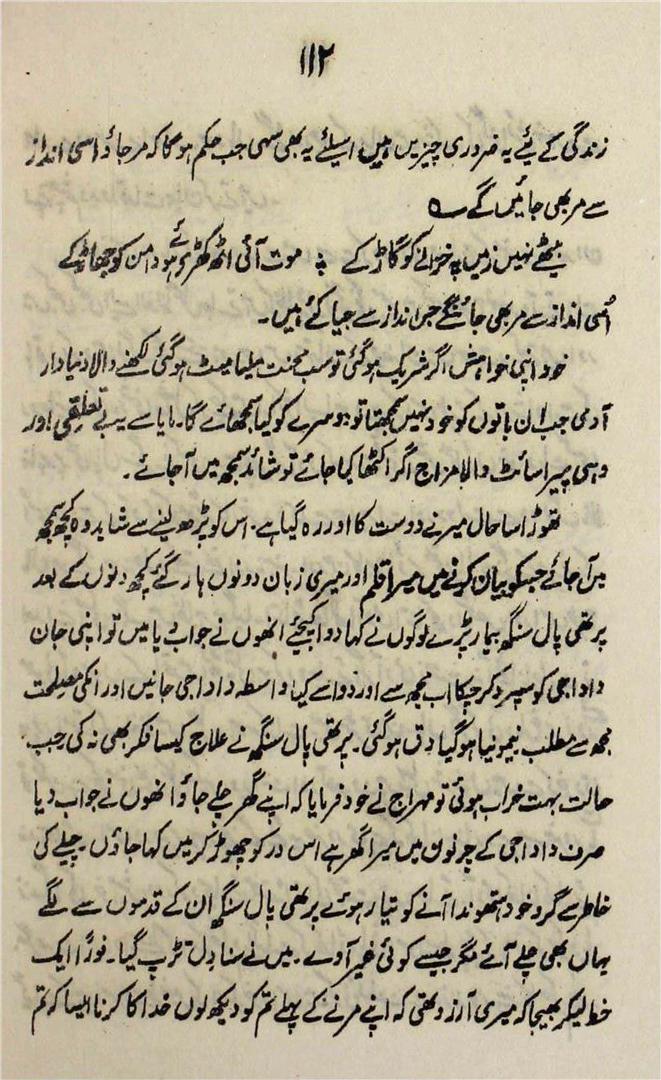 ۱۱۲
زندگی کے لئے یہ ضروری چیزیں ہیں اسلئے یہ بھی سہی جب حکم ہوگا کہ مر جاؤ اسی انداز
سے مر بھی جائیں گے ؎
بیٹھے نہیں زمیں پہ خزانے کو گاڑ کے ؞ موت آئی اٹھ کھڑے ہوئے دامن کو جھاڑ کے
اُسی انداز سے مر بھی جائینگے جس انداز سے جیا کئے ہیں۔
خود اپنی خواہش اگر شریک ہوگئی تو سب محنت ملیا میٹ ہوگئی لکھنے والا دنیا دار
آدمی جب ان باتوں کو خود نہیں سمجھتا تو دوسرے کو کیا سمجھائے گا۔ مایا سے بے تعلقی اور
وہی پیراسائٹ والا مزاج اگر اکٹھا کیا جائے تو شائد سمجھ میں آجائے۔
تھوڑا سا حال میرے دوست کا اور رہ گیا ہے۔ اس کو پڑھ لینے سے شاید وہ کچھ سمجھ
میں آجائے جسکو بیان کرنے میں میرا قلم اور میری زبان دونوں ہار گئے کچھ دنوں کے بعد
پرتھی پال سنگھ بیمار پڑے لوگوں نے کہا دوا کیجئے انھوں نے جواب دیا میں تو اپنی جان
داداجی کو سپرد کر چکا اب مجھ سے اور دوا سے کیا واسطہ داداجی جانیں اور انکی مصلحت
مجھ سے مطلب نیمونیا ہوگیا دق ہوگئی۔ پرتھی پال سنگھ نے علاج کیسا فکر بھی نہ کی جب
حالت بہت خراب ہوئی تو مہراج نے خود فرمایا کہ اپنے گھر چلے جاؤ انھوں نے جواب دیا
صرف داداجی کے چرنوں میں میرا گھر ہے اس در کو چھوڑ کر میں کہا جاؤں۔ چیلے کی
خاطر سے گرو خود ہتھوندا آنے کو تیار ہوئے پرتھی پال سنگھ ان کے قدموں سے لگے
یہاں بھی چلے آئے مگر جیسے کوئی غیر آوے۔ میں نے سنا دل تڑپ گیا۔ فوراً ایک
خط لیکر بھیجا کہ میری آرزو تھی کہ اپنے مرنے کے پہلے تم کو دیکھ لوں خدا کا کرنا ایسا کہ تم